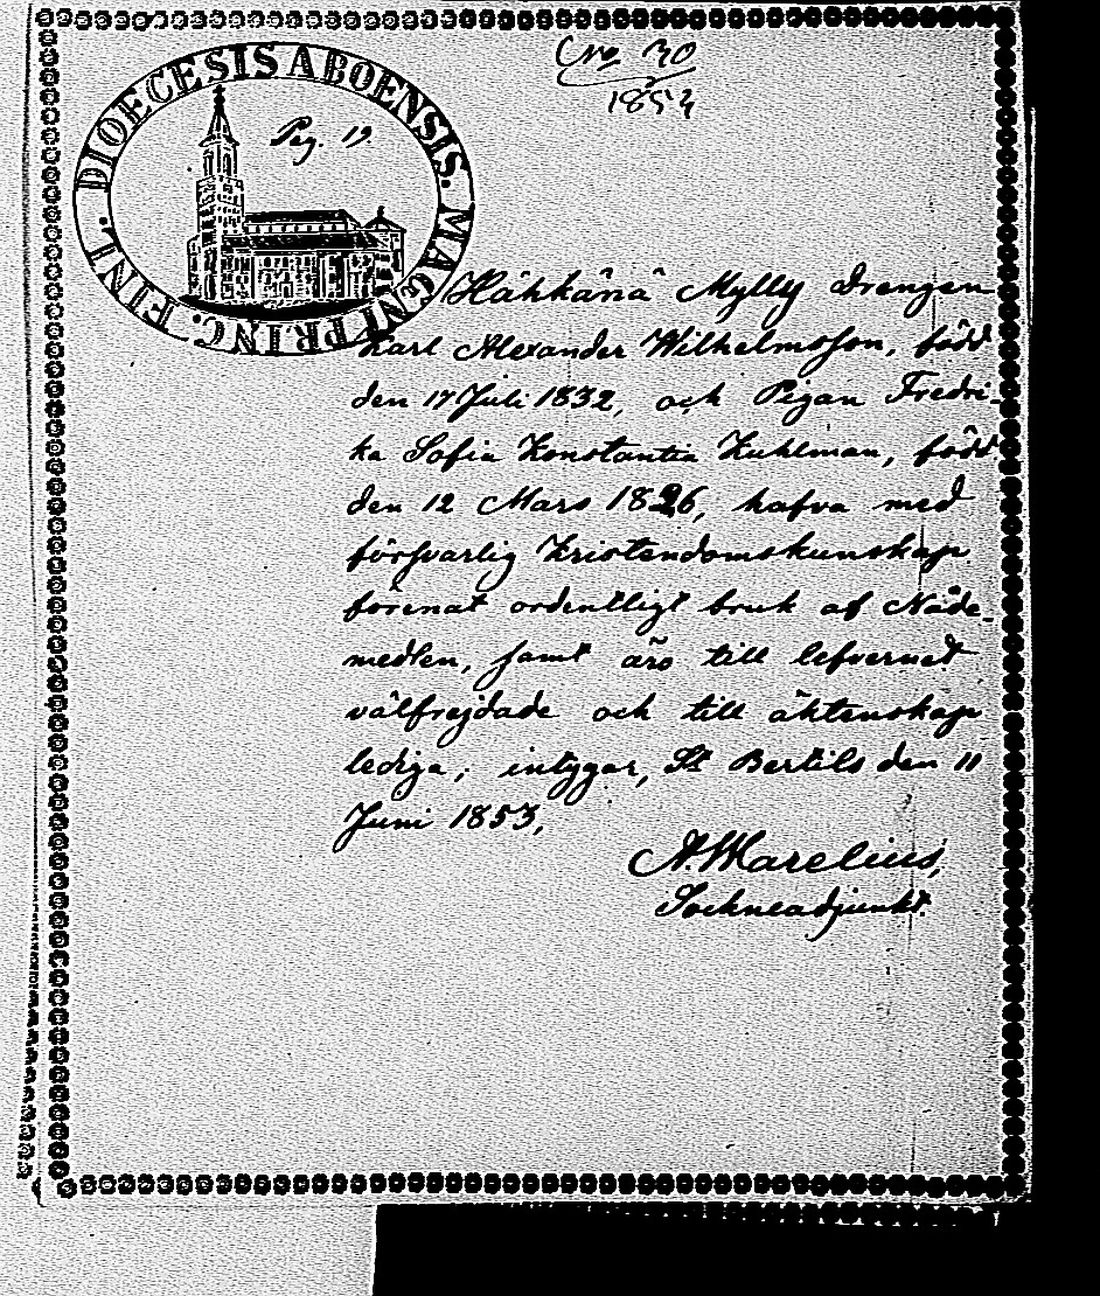 DIOECESIS ABOENSIS. MAGNI PRINC. FINL.
Pag. 19.
No 30
1853
Hähkänä Mylly Drengen
Karl Alexander Wilhelmsson, född
den 17 Juli 1832, och Pigan Fredri-
ka Sofia Konstantia Kuhlman, född
den 12 Mars 1826, hafva med
försvarlig Kristendomskunskap
förenat ordentligt bruk af Nåde-
medlen, samt äro till lefvernet
välfrejdade och till äktenskap
lediga; intygar, St Bertils den 11
Juni 1853,
A. Marelius,
Sockneadjunkt.